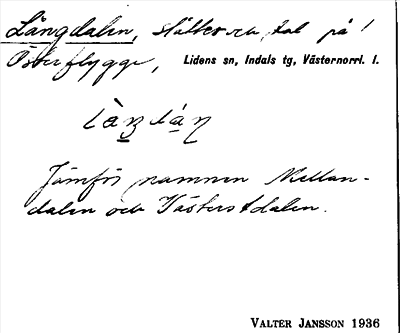 Långdalen, slåtter och, tal på
Österflygge, Lidens sn, Indals tg, Västernorrl. l.
Jämför namnen Mellan-
dalen och Västerstdalen.
VALTER JANSSON 1936